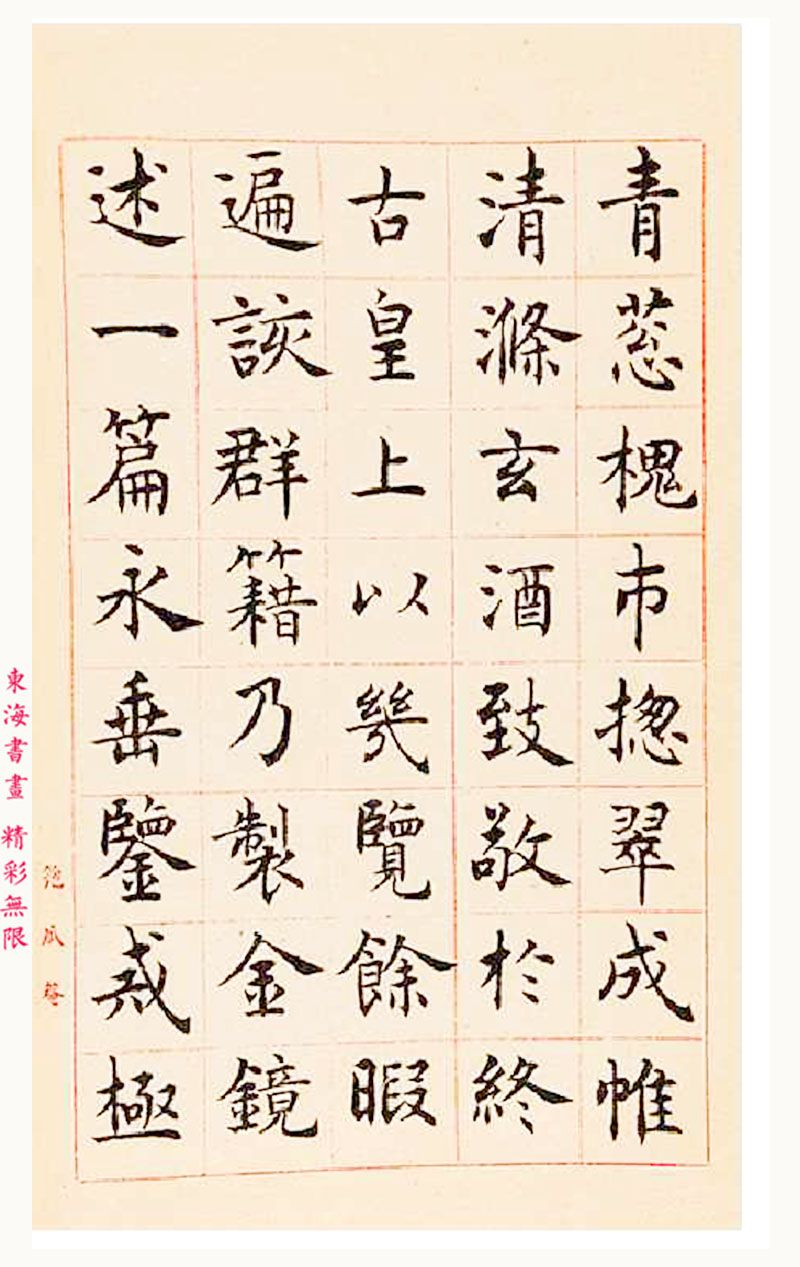 青蔥槐市揔翠成帷
清滌玄酒致敬於終
古皇上以幾覽餘暇
遍該群籍乃製金鏡
述一篇永垂鑒戒極
東海書畫 精彩無限